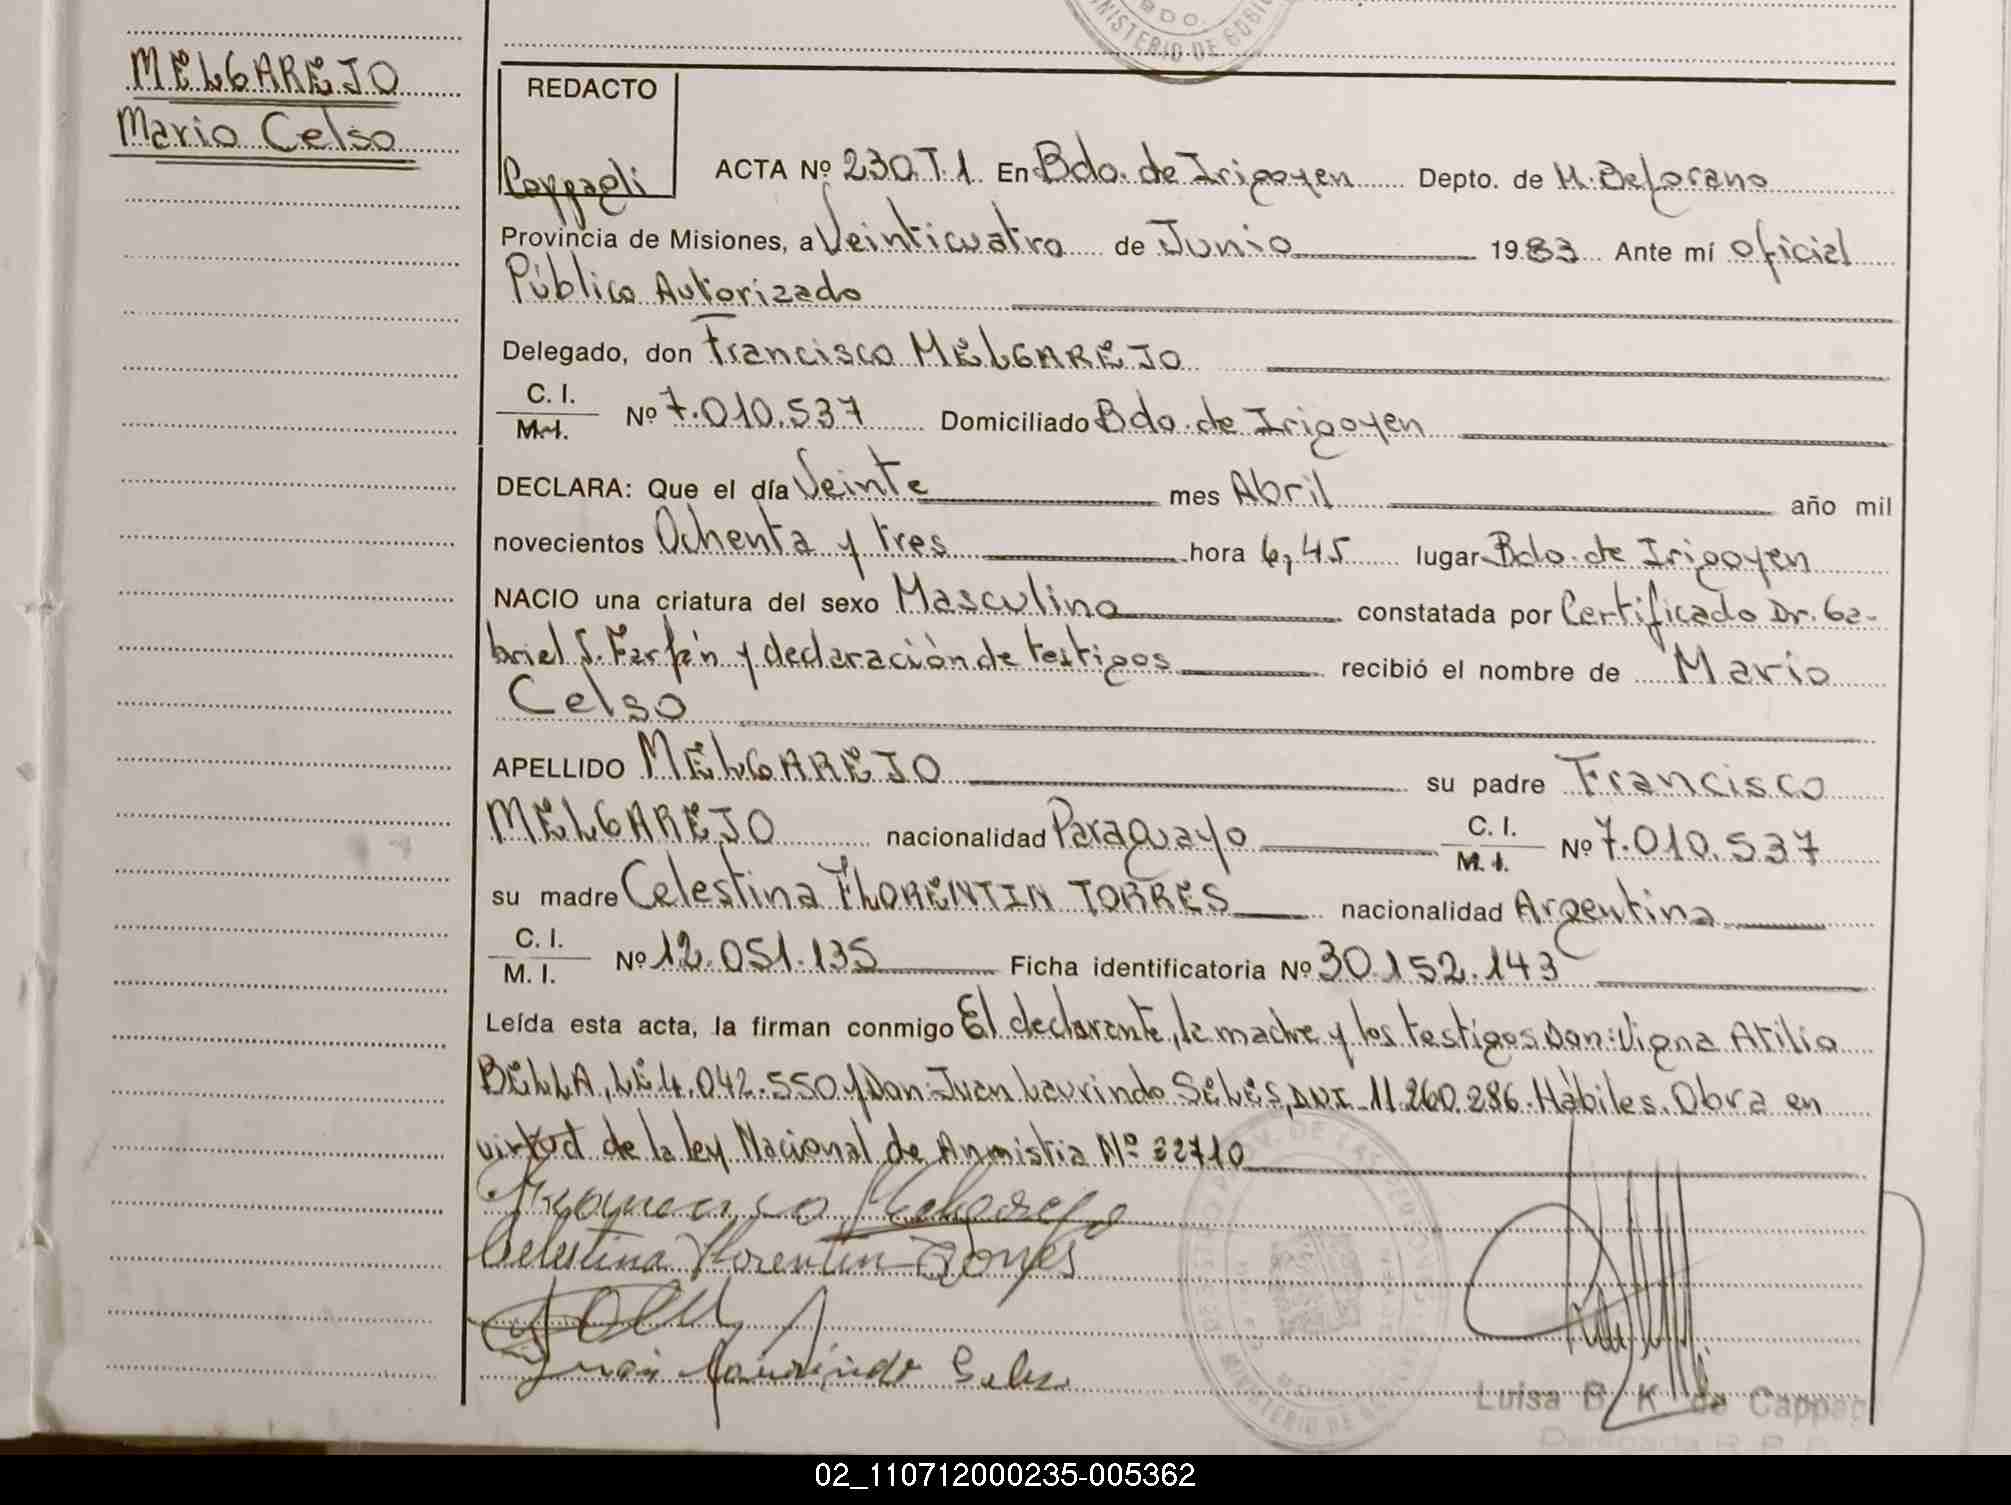 MINISTERIO DE GOBI
MELGAREJO
Mario Celso
REDACTO
Cappagli
ACTA Nº 230.T.1. En Bdo. de Irigoyen Depto. de M. Belgrano
Provincia de Misiones, a Veinticuatro de Junio 1983 Ante mí oficial
Público Autorizado
Delegado, don Francisco MELGAREJO
C. I.
M. I.
Nº 7.010.537 Domiciliado Bdo. de Irigoyen
DECLARA: Que el día Veinte mes Abril año mil
novecientos Ochenta y tres hora 6,45 lugar Bdo. de Irigoyen
NACIO una criatura del sexo Masculino constatada por Certificado Dr. Ga-
briel S. Farfán y declaración de testigos recibió el nombre de Mario
Celso
APELLIDO MELGAREJO su padre Francisco
MELGAREJO nacionalidad Paraguayo C. I. M. I. Nº 7.010.537
su madre Celestina FLORENTIN TORRES nacionalidad Argentina
C. I.
M. I.
Nº 12.051.135 Ficha identificatoria Nº 30.152.143
Leída esta acta, la firman conmigo El declarante, la madre y los testigos Don: Vigna Atilio
BELLA, LE.4.042.550 y Don: Juan Laurindo SELES, DNI. 11.260.286. Hábiles. Obra en
virtud de la ley Nacional de Anmistia Nº 22710
Francisco Melgarejo
Celestina Florentin Torres
Juan Laurindo Seles
Luisa B. K. de Cappag
Delegada R. P.
02_110712000235-005362